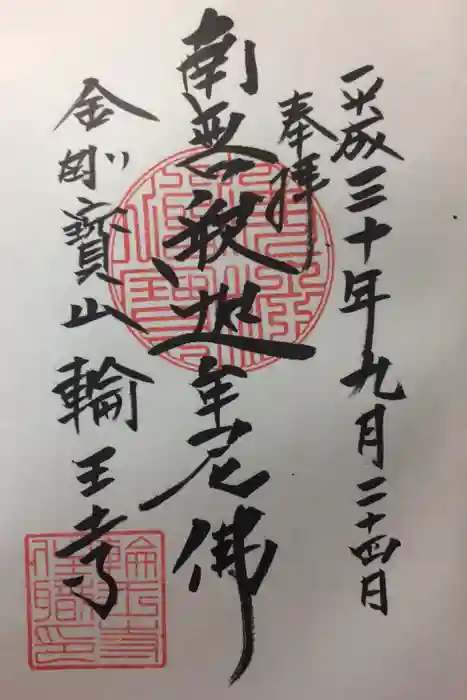 平成三十年九月二十四日
奉拝
南無釈迦牟尼佛
金剛寶山輪王寺
輪王寺
住職印